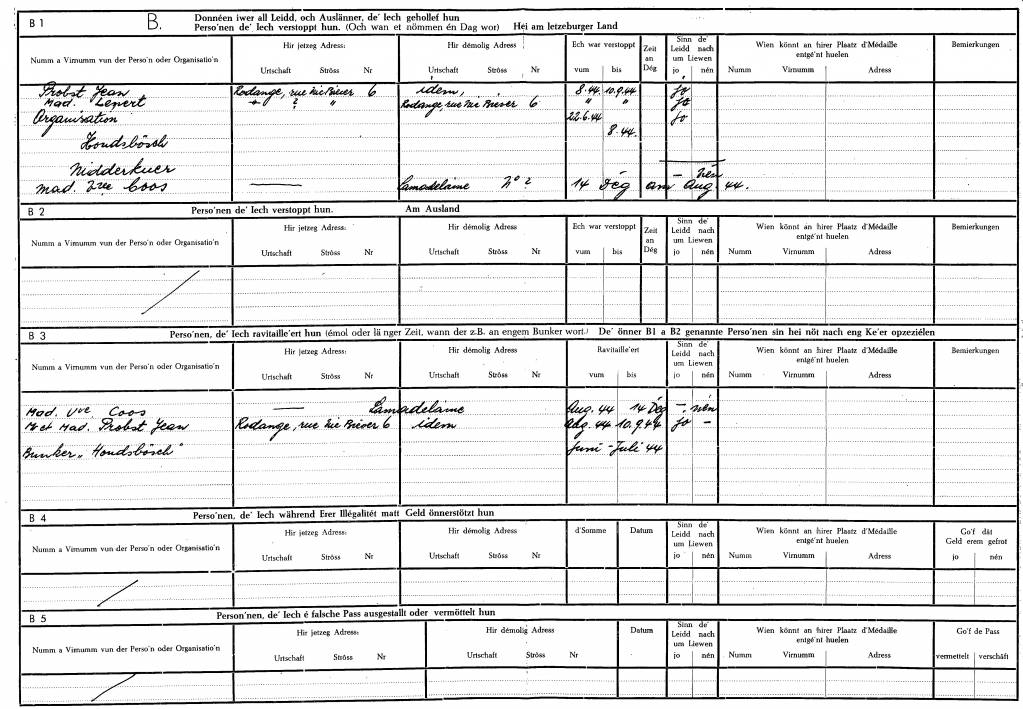 B 1 B. Donnéen iwer all Leidd, och Auslänner, de' Iech gehollef hun
Perso'nen de' Iech verstoppt hun. (Och wan et nömmen én Dag wor) Hei am letzeburger Land
Numm a Virnumm vun der Perso'n oder Organisatio'n
Hir jetzeg Adress:
Urtschaft Ströss Nr
Hir démolig Adress :
Urtschaft Ströss Nr
Ech war verstoppt
vum bis
Zeit an Dég
Sinn de' Leidd nach um Liewen
jo nén
Wien könnt an hirer Plaatz d'Médaille entgé'nt huelen
Numm Virnumm Adress
Bemierkungen
Probst Jean Rodange, rue Nic Biever 6 idem, 8.44. 10.9.44 jo
Mad. Lenert " " " Rodange, rue Nic Biever 6 " " jo
Organisation 22.6.44 jo
8.44.
Hondsbösch
Nidderkuer
Mad. Vve Coos Lamadelaine No ? 14 Deg am Aug. 44. – nén
B 2 Perso'nen de' Iech verstoppt hun. Am Ausland
Numm a Virnumm vun der Perso'n oder Organisatio'n
Hir jetzeg Adress:
Urtschaft Ströss Nr
Hir démolig Adress
Urtschaft Ströss Nr
Ech war verstoppt
vum bis
Zeit an Dég
Sinn de' Leidd nach um Liewen
jo nén
Wien könnt an hirer Plaatz d'Médaille entgé'nt huelen
Numm Virnumm Adress
Bemierkungen
B 3 Perso'nen, de' Iech ravitaille'ert hun (émol oder lä nger Zeit, wann der z.B. an engem Bunker wort.) De' önner B1 a B2 genannte Perso'nen sin hei nöt nach eng Ke'er opzeziélen
Numm a Virnumm vun der Perso'n oder Organisatio'n
Hir jetzeg Adress:
Urtschaft Ströss Nr
Hir démolig Adress
Urtschaft Ströss Nr
Ravitaille'ert
vum bis
Sinn de' Leidd nach um Liewen
jo nén
Wien könnt an hirer Plaatz d'Médaille entgé'nt huelen
Numm Virnumm Adress
Bemierkungen
Mad. Vve Coos — Lamadelaine Aug. 44 14 Deg – nén
M et Mad. Probst Jean Rodange, rue Nic Biever 6 idem Aug. 44 10.9.44 jo –
Bunker „Hondsbösch" Juni - Juli 44
B 4 Perso'nen, de' Iech während Erer Illégalitét matt Geld önnerstötzt hun
Numm a Virnumm vun der Perso'n oder Organisatio'n
Hir jetzeg Adress:
Urtschaft Ströss Nr
Hir démolig Adress
Urtschaft Ströss Nr
d'Somme
Datum
Sinn de' Leidd nach um Liewen
jo nén
Wien könnt an hirer Plaatz d'Médaille entgé'nt huelen
Numm Virnumm Adress
Go'f dât Geld erem gefrot
jo nén
B 5 Person'nen, de' Iech é falsche Pass ausgestallt oder vermöttelt hun
Numm a Virnumm vun der Perso'n oder Organisatio'n
Hir jetzeg Adress:
Urtschaft Ströss Nr
Hir démolig Adress
Urtschaft Ströss Nr
Datum
Sinn de' Leidd nach um Liewen
jo nén
Wien könnt an hirer Plaatz d'Médaille entgé'nt huelen
Numm Virnumm Adress
Go'f de Pass
vermettelt verschâft